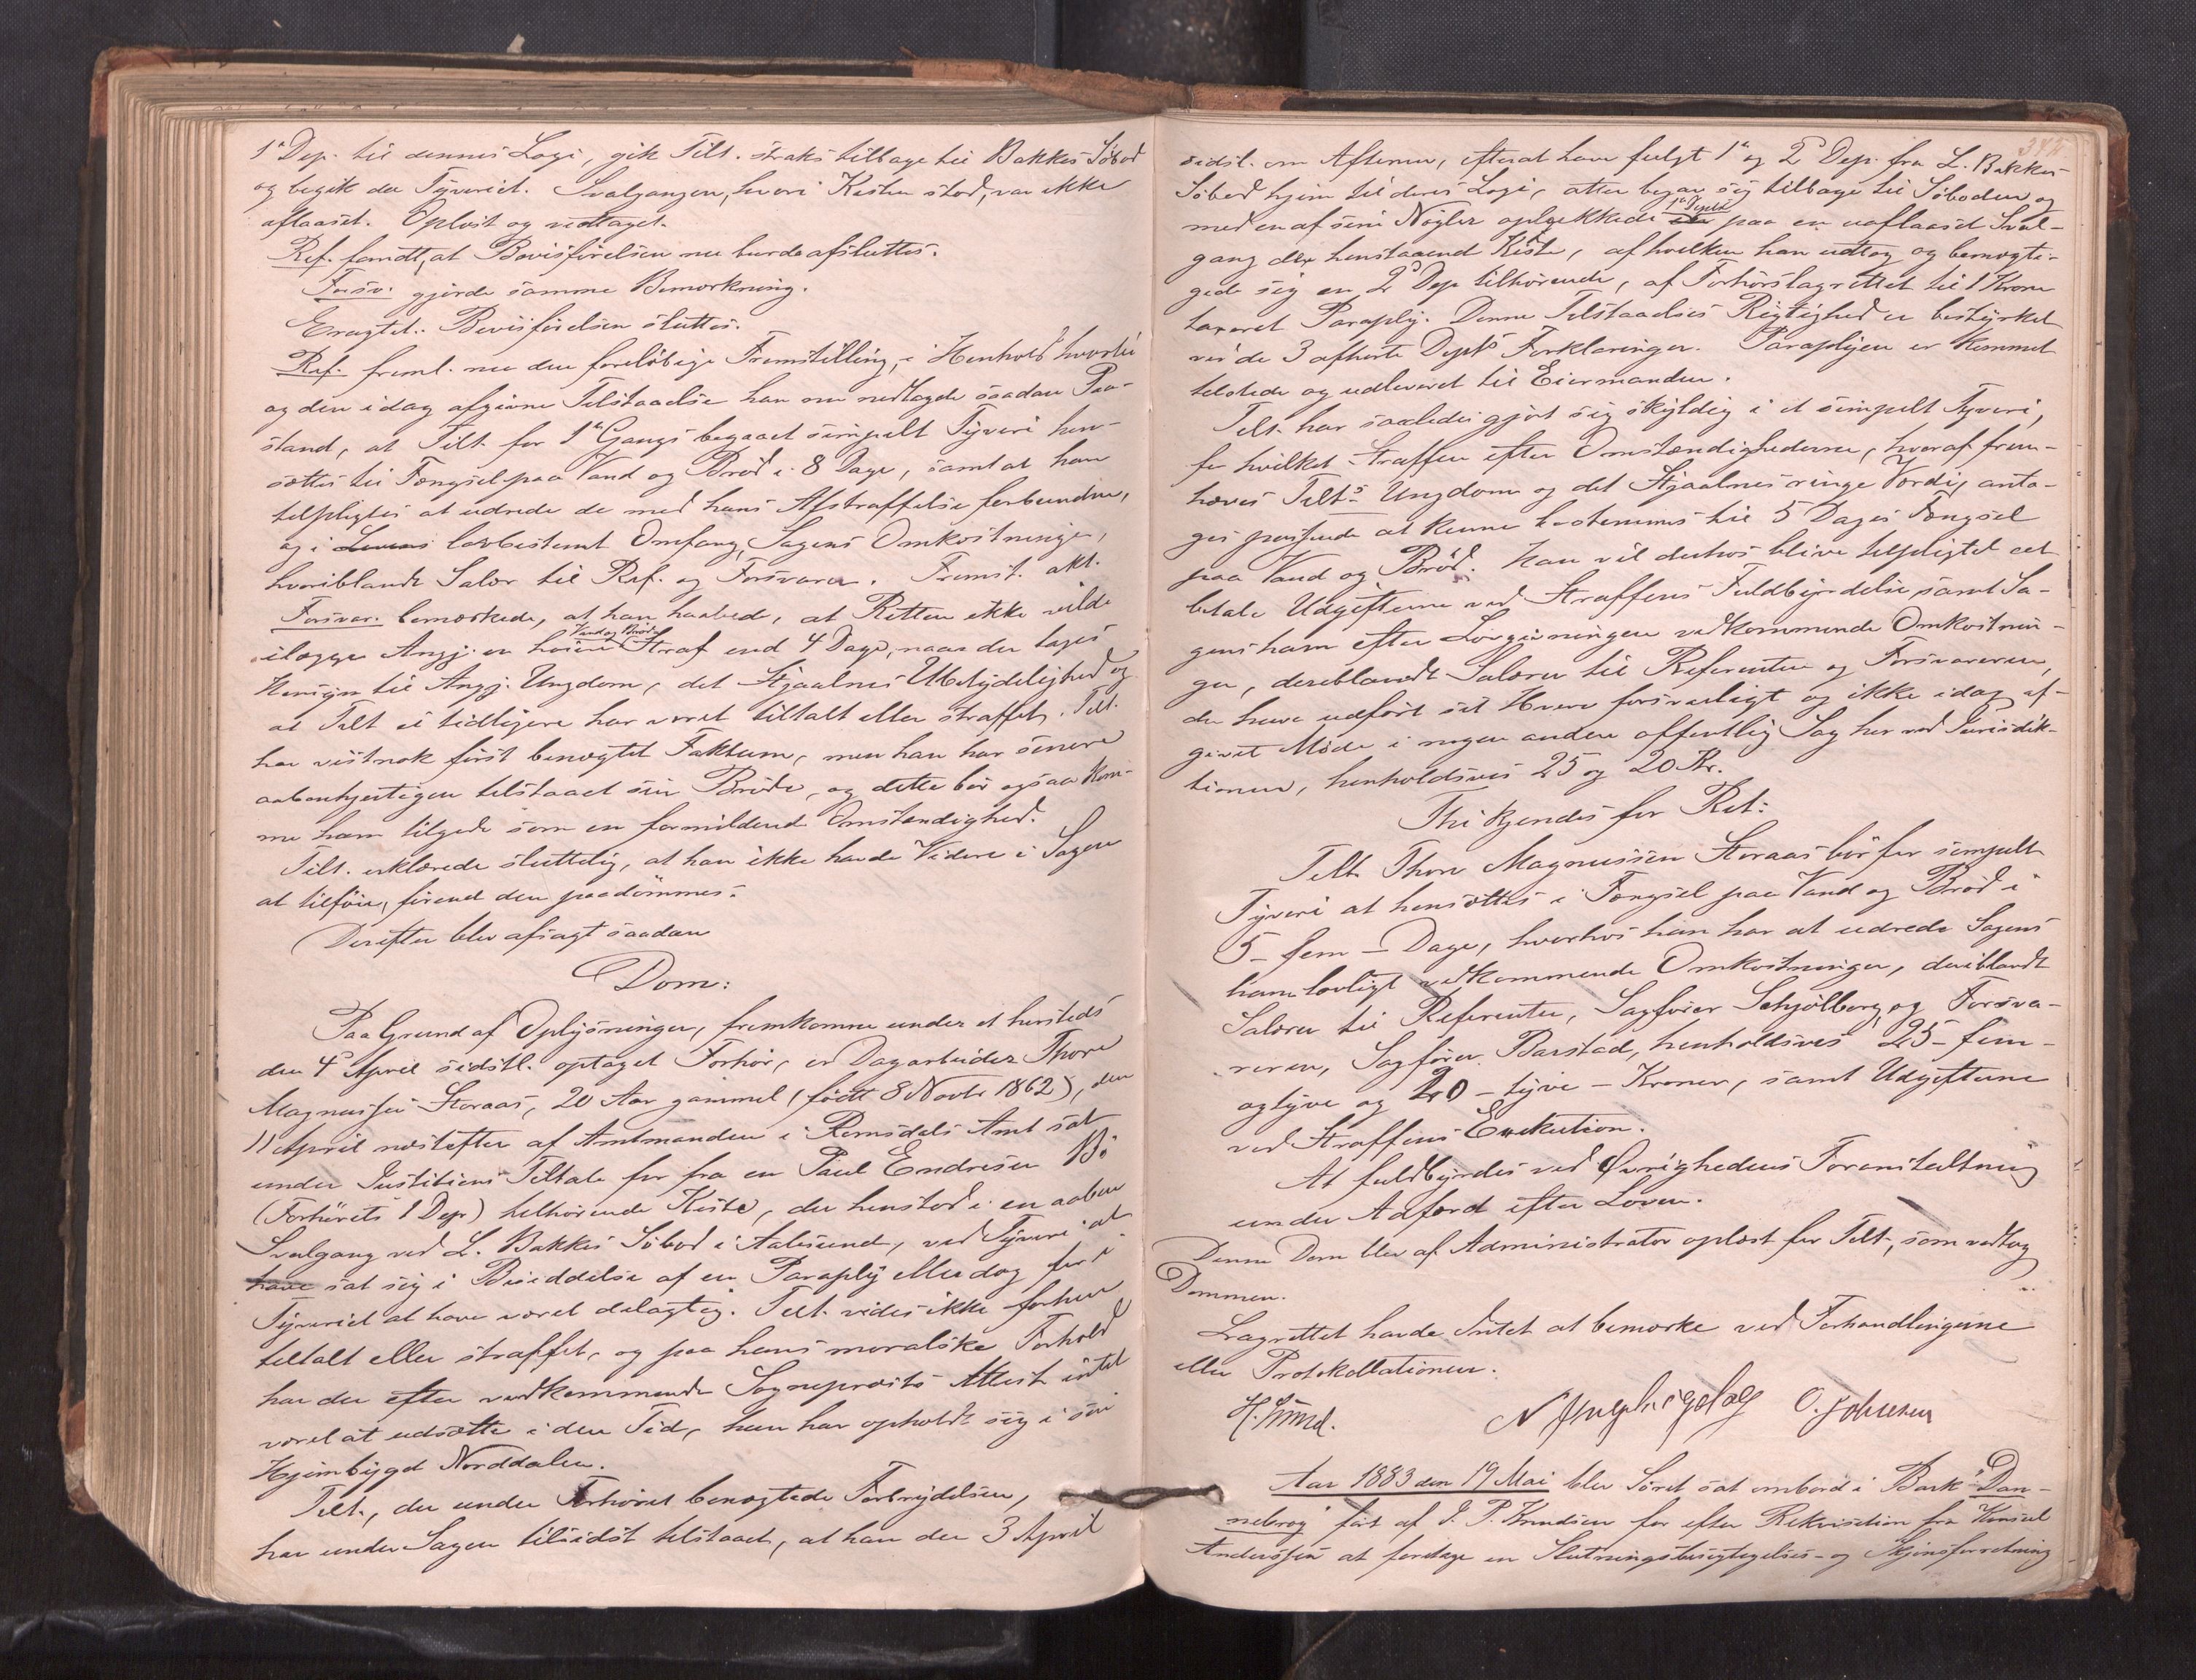 1ste Dep. til dennes Logi, gik Tilt. straks tilbage til Bakkes Søbod
og begik da Tyveriet. Svalgangen, hvori Kisten stod, var ikke
aflaaset. Oplæst og vedtaget.
Ref. fandt, at Bevisførelsen nu burde afsluttes.
Forsv. gjorde samme Bemærkning.
Eragtet: Bevisførelsen sluttes.
Ref. freml. nu den foreløbige Fremstilling, i Henhold hvortil
og den idag afgivne Tilstaaelse han nu nedlagde saadan Paa-
stand, at Tilt. for 1ste Gangs begaaet simpelt Tyveri hen-
sættes til Fængsel paa Vand og Brød i 8 Dage, samt at han
tilpligtes at udrede de med hans Afstraffelse forbundne,
og i Lovens lovbestemt Omfang, Sagens Omkostninger,
hvoriblandt Salær til Ref. og Forsvarer. Fremst. akt.
Forsvar. bemærkede, at han haabede, at Retten ikke vilde
ilægge Angj. en høiere Vand og Brøds Straf end 4 Dage, naar der tages
Hensyn til Angj. Ungdom, det Stjaalnes Ubetydelighed og
at Tilt ei tidligere har været tiltalt eller straffet. Tilt.
har vistnok først benægtet Faktum, men han har senere
aabenhjertigen tilstaaet sin Brøde, og dette bør ogsaa kom-
me ham tilgode som en formildende Omstændighed.
Tilt. erklærede sluttelig, at han ikke havde Videre i Sagen
at tilføie, førend den paadømmes.
Derefter blev afsagt saadan
Dom:
Paa Grund af Oplysninger, fremkomne under et hersteds
den 4de April sidstl. optaget Forhør, er Dagarbeider Thore
Magnussen Storaas, 20 Aar gammel (født 8 Novbr 1862), den
11 April næstefter af Amtmanden i Romsdals Amt sat
under Justitiens Tiltale for fra en Paul Endresen Bø
(Forhørets 1 Dep) tilhørende Kiste, der henstod i en aaben
Svalgang ved L. Bakkes Søbod i Aalesund, ved Tyveri at
have sat sig i Besiddelse af en Paraply eller dog for i
Tyveriet at have været delagtig. Tilt. vides ikke forhen
tiltalt eller straffet, og paa hans moralske Forhold
har der efter vedkommende Sogneprests Attest intet
været at udsætte i den Tid, han har opholdt sig i sin
Hjembygd Norddalen.
Tilt., der under Forhøret benægtede Forbrydelsen,
har under Sagen tilsidst tilstaaet, at han den 3 April
sidstl. om Aftenen, efterat have fulgt 1ste og 2den Dep. fra L. Bakkes
Søbod hjem til deres Logi, atter begav sig tilbage til Søboden og
med en af sine Nøgler oplukkede 1ste Depts paa en uaflaaset Sval-
gang der henstaaende Kiste, af hvilken han udtog og bemægti-
gede sig en 2den Dep tilhørende, af Forhørslagrettet til 1 Krone
taxeret Paraply. Denne Tilstaaelses Rigtighed er bestyrket
ved de 3 afhørte Depts Forklaringer. Paraplyen er kommet
tilstede og udleveret til Eiermanden.
Tilt. har saaledes gjort sig skyldig i et simpelt Tyveri,
for hvilket Straffen efter Omstændighederne, hvoraf frem-
hæves Tilts Ungdom og det Stjaalnes ringe Værdi, anta-
ges passende at kunne bestemmes til 5 Dages Fængsel
paa Vand og Brød. Han vil derhos blive tilpligtet at
betale Udgifterne ved Straffens Fuldbyrdelse, samt Sa-
gens ham efter Lovgivningen vedkommende Omkostnin-
ger, deriblandt Salærer til Referenten og Forsvareren,
der have udført sit Hverv forsvarligt og ikke idag af-
givet Møde i nogen anden offentlig Sag her ved Jurisdik-
tionen, henholdsvis 25 og 20 Kr.
Thi kjendes for Ret:
Tilt. Thore Magnussen Storaas bør for simpelt
Tyveri at hensættes i Fængsel paa Vand og Brød i
5 – fem – Dage, hvorhos han har at udrede Sagens
ham lovligt vedkommende Omkostninger, deriblandt
Salærer til Referenten, Sagfører Schjølberg, og Forsva-
reren, Sagfører Barstad, henholdsvis 25 – fem –
og tyve og 20 – tyve – Kroner, samt Udgifterne
ved Straffens Exekution.
At fuldbyrdes ved Øvrighedens Foranstaltning
under Adfærd efter Loven.
Denne Dom blev af Administrator oplæst for Tilt., som vedtog
Dommen.
Lagrettet havde Intet at bemærke ved Forhandlingerne
eller Protokollationen.
O. Johnsen
Aar 1883 den 19 Mai blev Søret sat ombord i Bark "Dan-
nebrog" ført af J. P. Knudsen for efter Rekvisition fra Konsul
Anderssen at foretage en Slutningsbesigtigelses- og Skjønsforretning